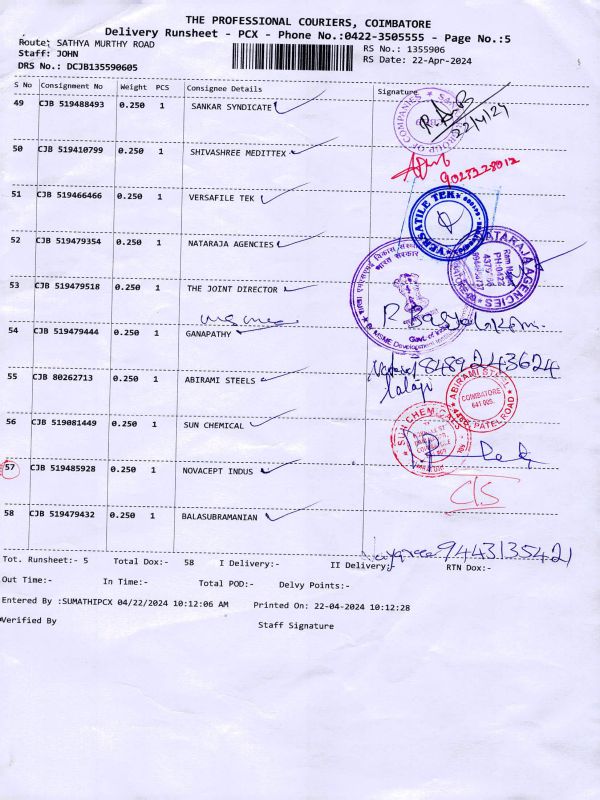 THE PROFESSIONAL COURIERS, COIMBATORE
Delivery Runsheet - PCX - Phone No.:0422-3505555 - Page No.:5
Route: SATHYA MURTHY ROAD RS No.: 1355906
Staff: JOHN RS Date: 22-Apr-2024
DRS No.: DCJB135590605
S No Consignment No Weight PCS Consignee Details Signature
49 CJB 519488493 0.250 1 SANKAR SYNDICATE
22/4/24
50 CJB 519410799 0.250 1 SHIVASHREE MEDITTEX
9025228012
51 CJB 519466466 0.250 1 VERSAFILE TEK
VERSATILE TEK
52 CJB 519479354 0.250 1 NATARAJA AGENCIES
NATARAJA AGENCIES
Ram Nagar
PH:0422
भारत सरकार
53 CJB 519479518 0.250 1 THE JOINT DIRECTOR
Govt. of India
MSME Development
54 CJB 519479444 0.250 1 GANAPATHY
8489243624
55 CJB 80262713 0.250 1 ABIRAMI STEELS
ABIRAMI STEEL
COIMBATORE
PATEL ROAD
56 CJB 519081449 0.250 1 SUN CHEMICAL
SUN CHEMICALS
57 CJB 519485928 0.250 1 NOVACEPT INDUS
C/S
58 CJB 519479432 0.250 1 BALASUBRAMANIAN
9443135421
Tot. Runsheet:- 5 Total Dox:- 58 I Delivery:- II Delivery:- RTN Dox:-
Out Time:- In Time:- Total POD:- Delvy Points:-
Entered By :SUMATHIPCX 04/22/2024 10:12:06 AM Printed On: 22-04-2024 10:12:28
Verified By Staff Signature